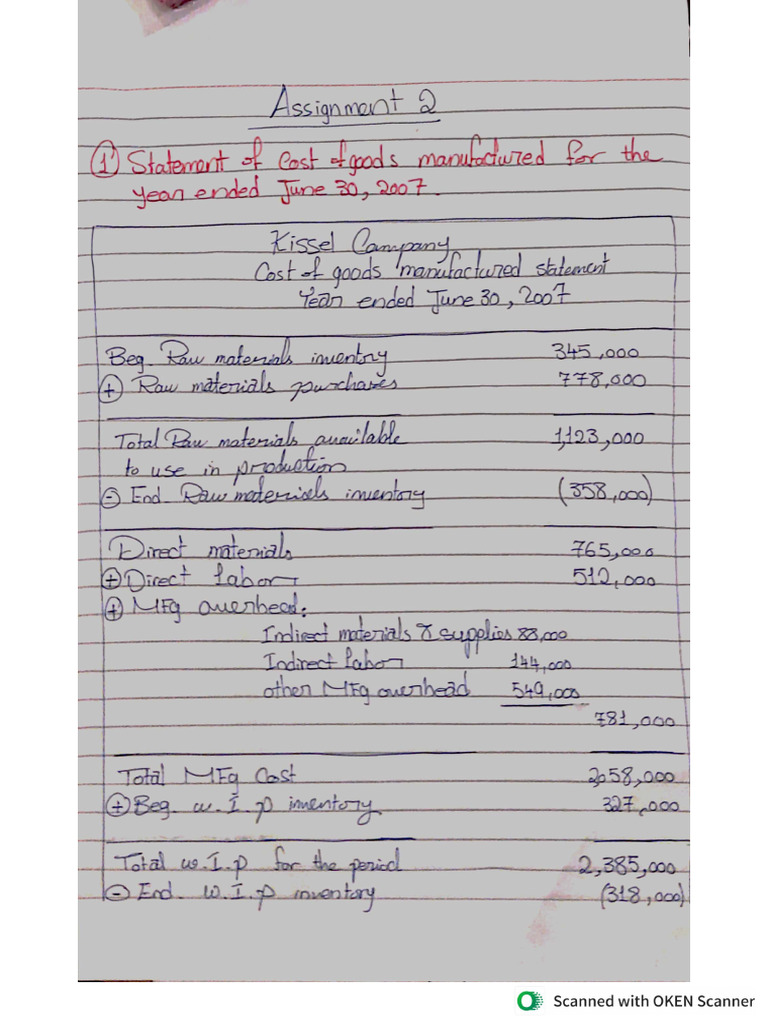 Assignment 2
① Statement of Cost of goods manufactured for the
year ended June 30, 2007.
Kissel Company
Cost of goods manufactured statement
Year ended June 30, 2007
Beg. Raw materials inventory 345,000
(+) Raw materials purchases 778,000
Total Raw materials available 1,123,000
to use in production
(-) End. Raw materials inventory (358,000)
Direct materials 765,000
(+) Direct labor 512,000
(+) MFg overhead:
Indirect materials & supplies 88,000
Indirect labor 144,000
other MFg overhead 549,000
781,000
Total MFg Cost 2,058,000
(+) Beg. w.I.p inventory 327,000
Total w.I.p for the period 2,385,000
(-) End. W.I.p inventory (318,000)
Scanned with OKEN Scanner